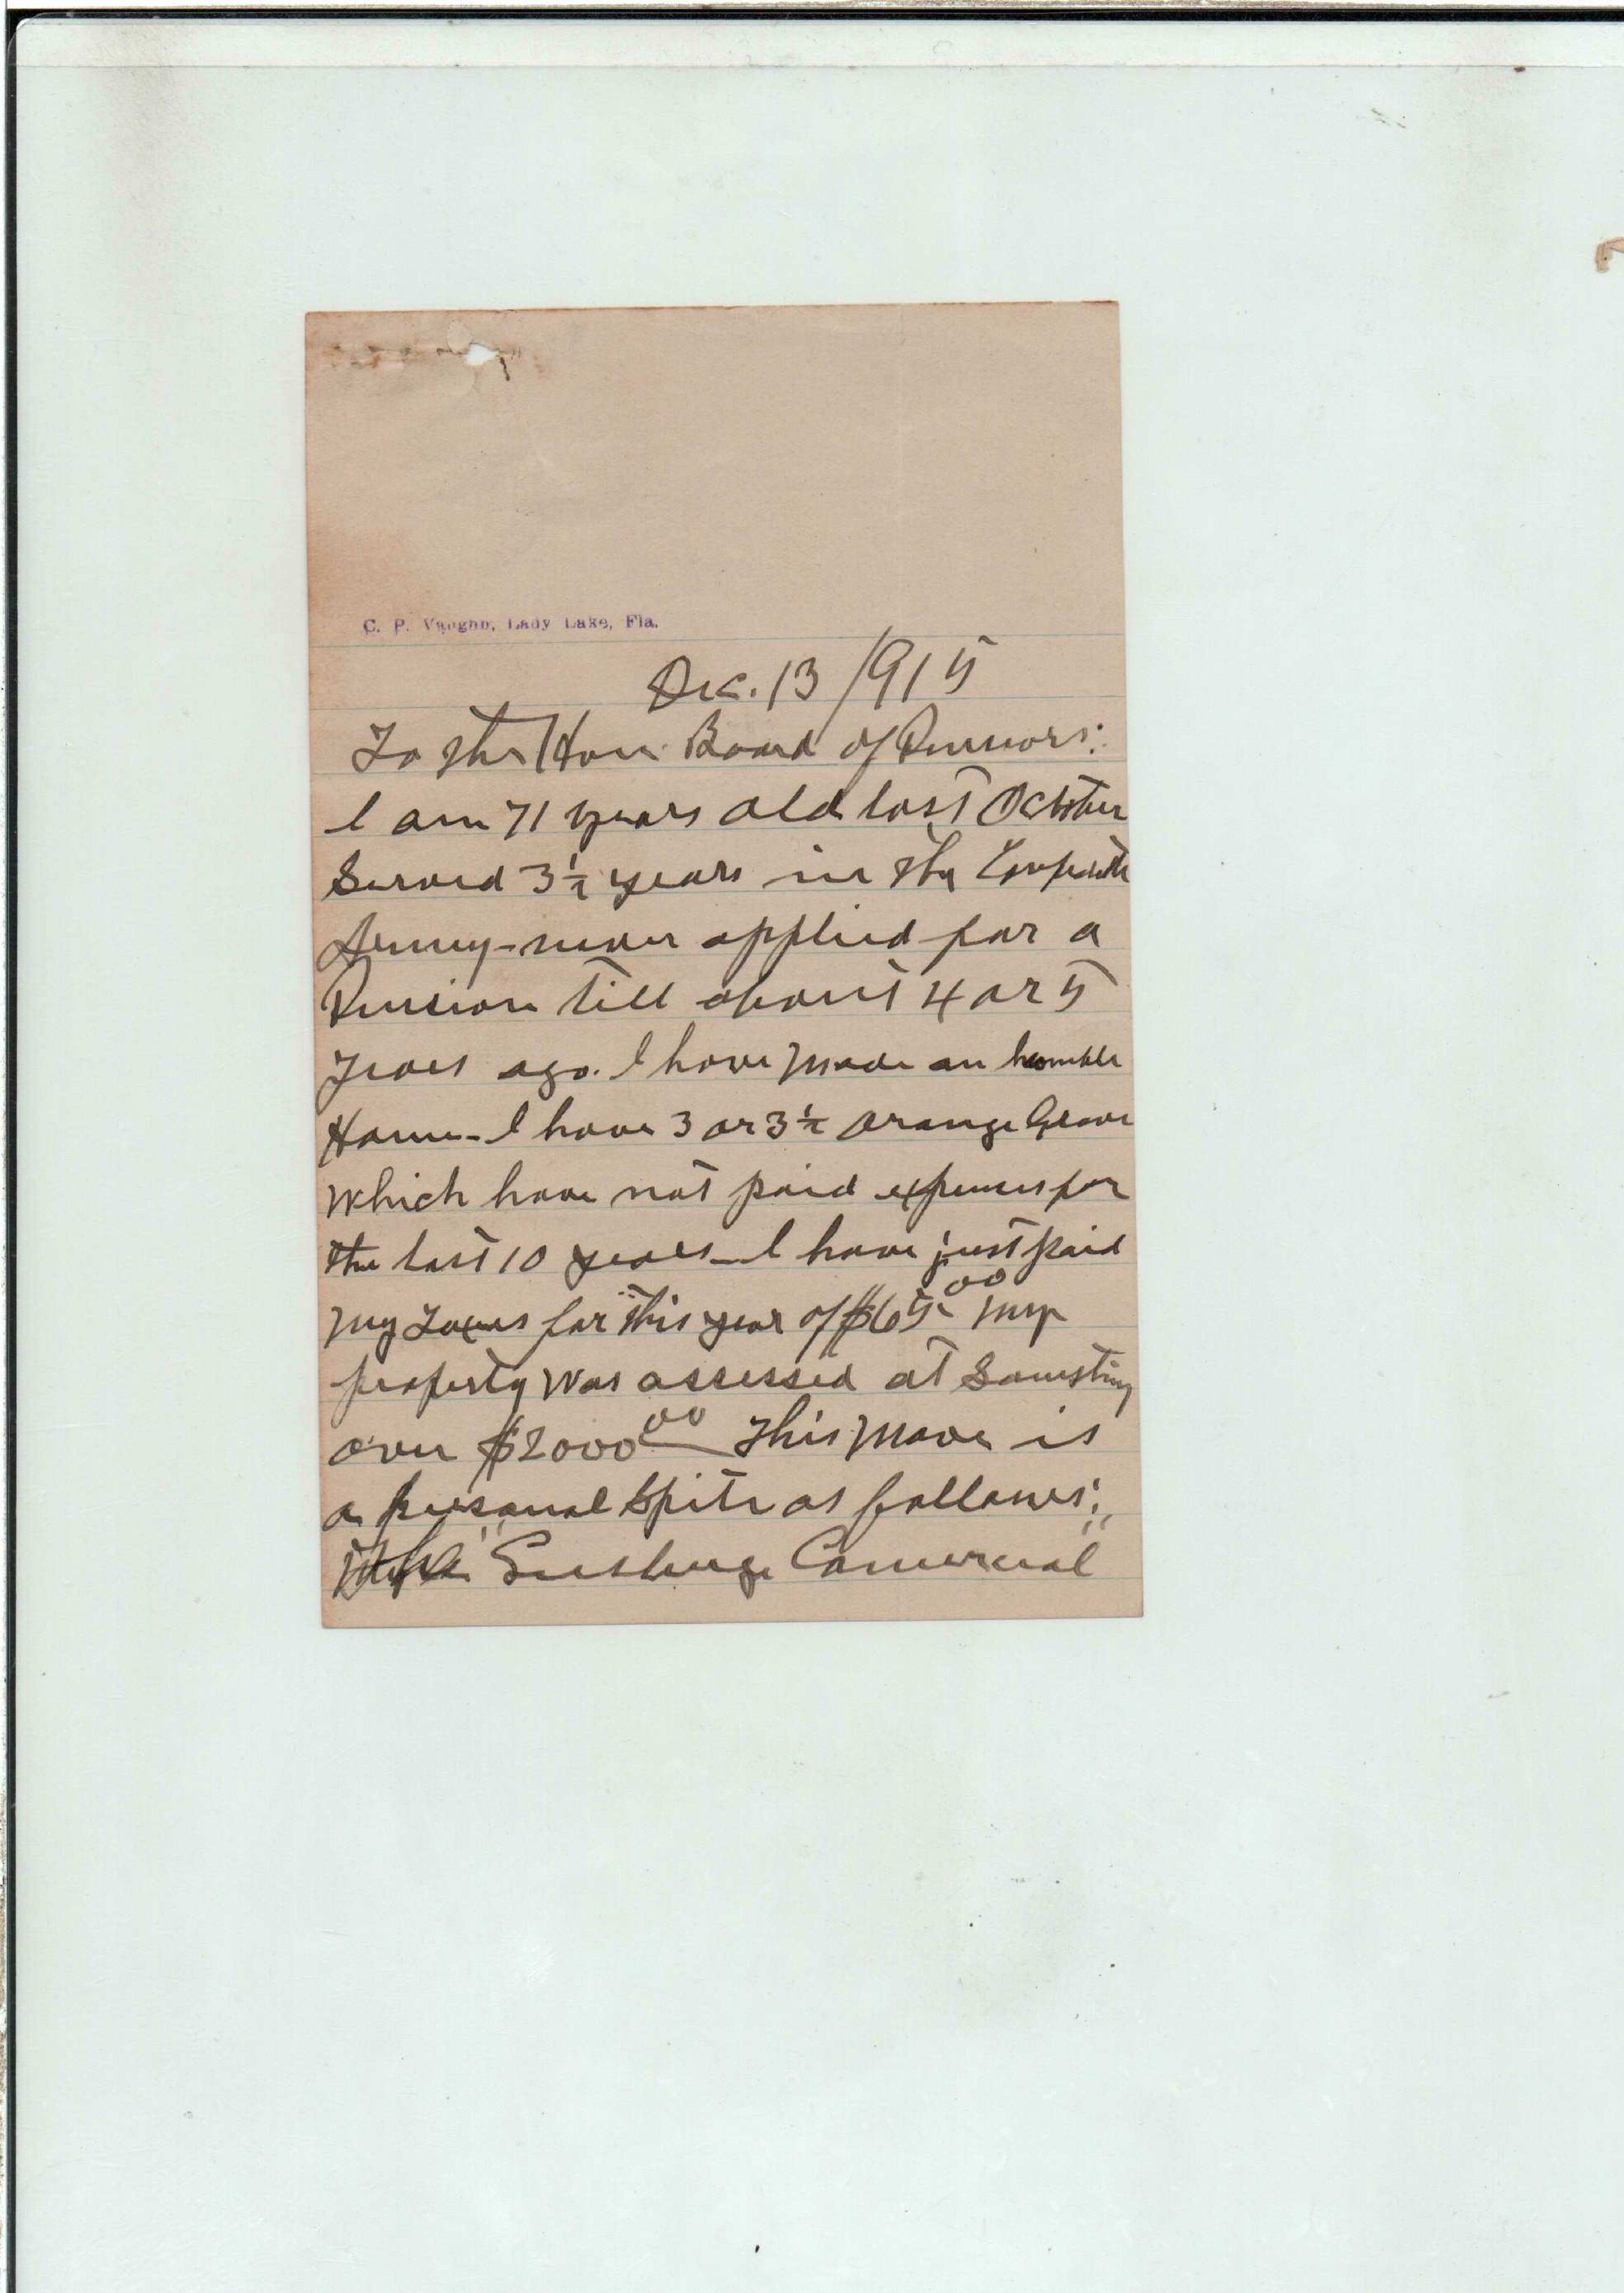 C. P. Vaughn, Lady Lake, Fla.
Dec. 13/915
To the Hon. Board of Pensions:
I am 71 years old last October
Served 3½ years in the Confederate
Army - never applied for a
Pension till about 4 or 5
years ago. I have made an humble
Home - I have 3 or 3½ orange Grove
which have not paid expenses for
the last 10 years - I have just paid
my Taxes for this year of $65.00 my
property was assessed at Something
over $2000.00 This move is
a personal spite as follows:
"Leesburg Comercial"